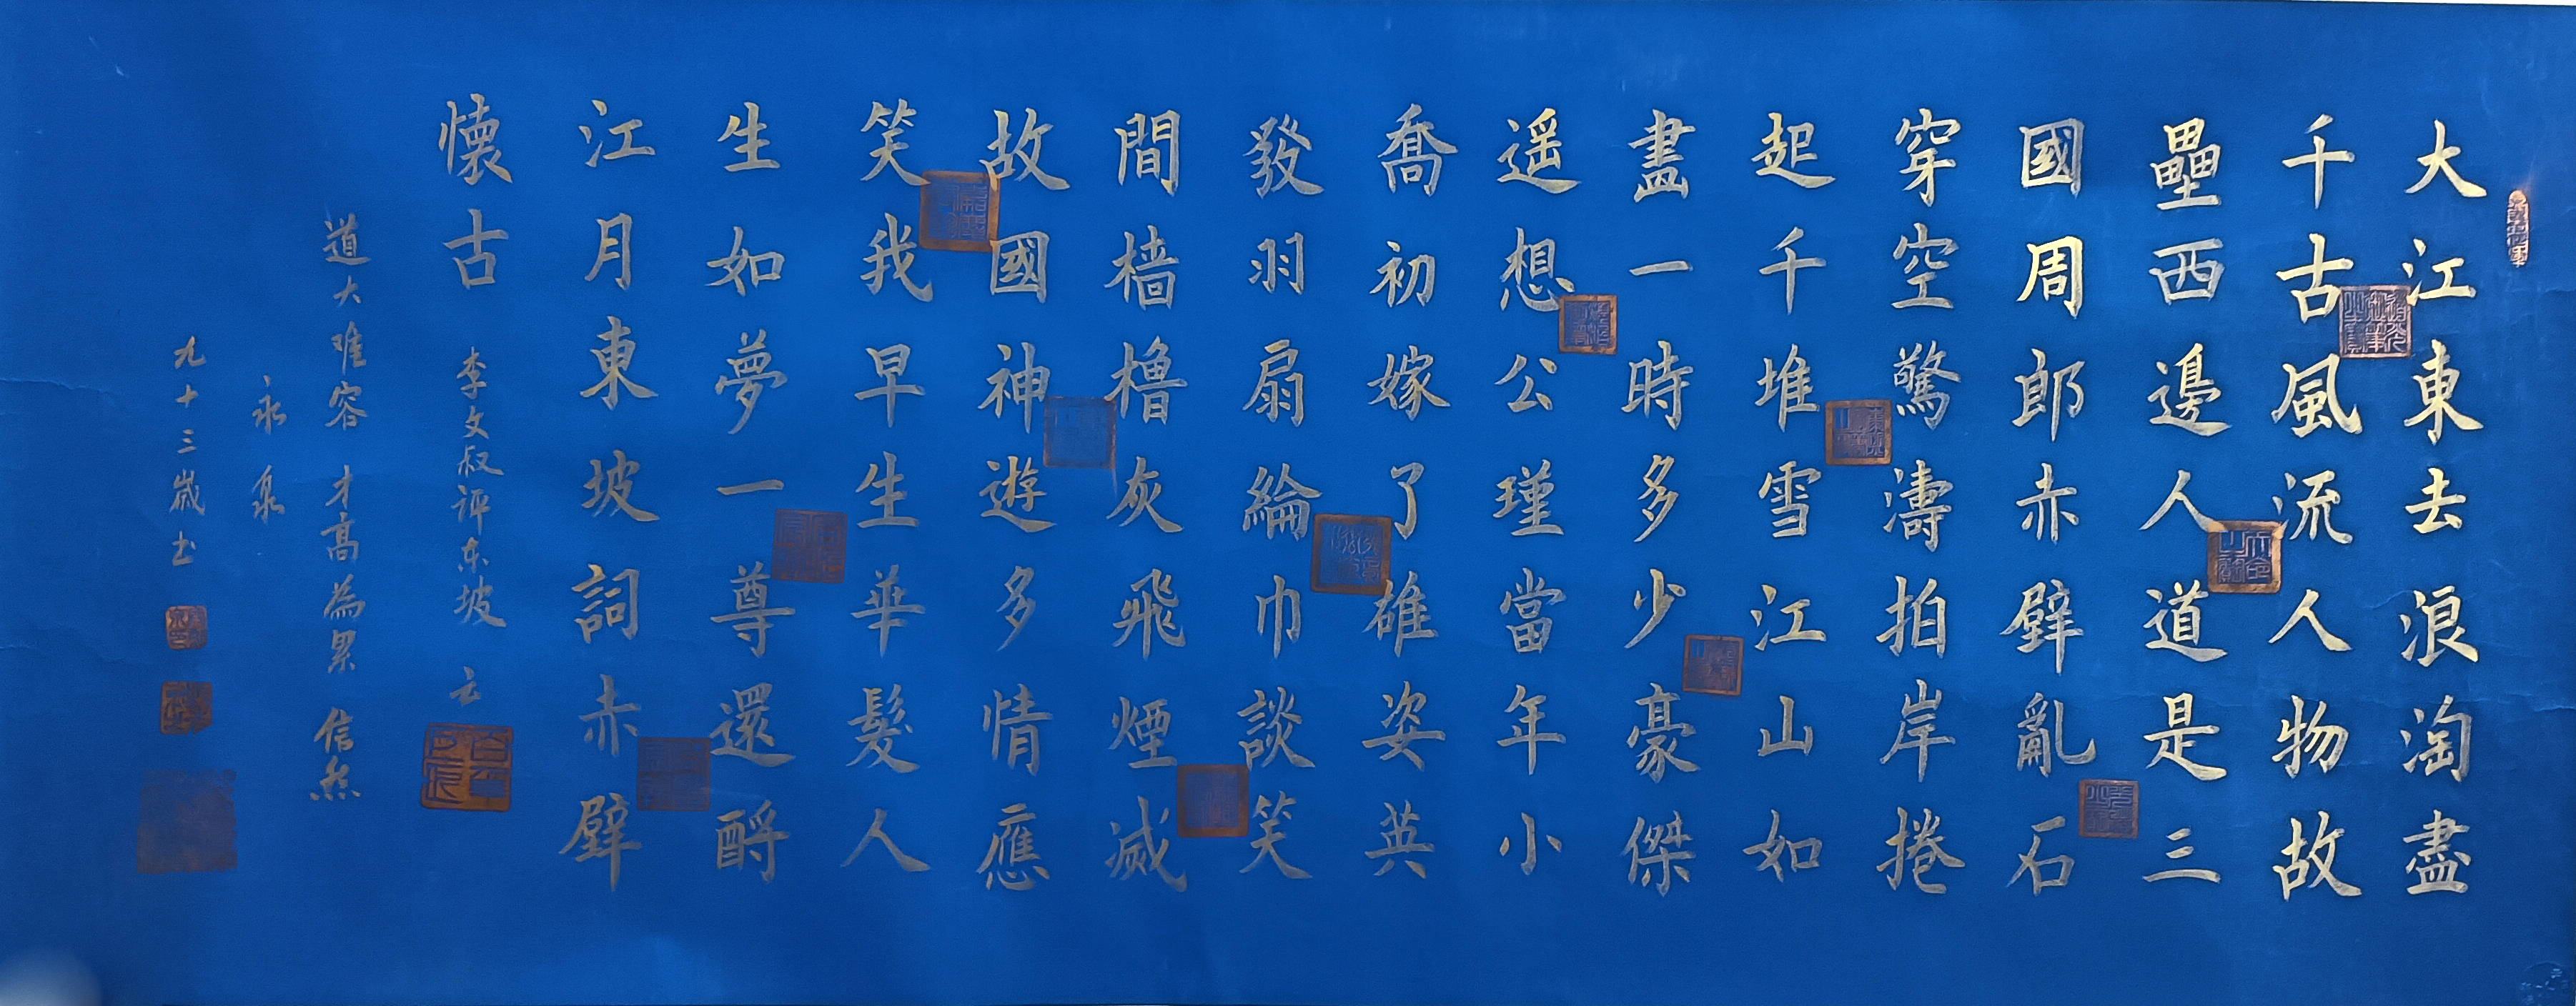 大江東去浪淘盡
千古風流人物故
壘西邊人道是三
國周郎赤壁亂石
穿空驚濤拍岸捲
起千堆雪江山如
畫一時多少豪傑
遥想公瑾當年小
喬初嫁了雄姿英
發羽扇綸巾談笑
間檣櫓灰飛煙滅
故國神遊多情應
笑我早生華髮人
生如夢一尊還酹
江月東坡詞赤壁
懷古
李文叔评东坡云
道大难容才高為累信然
永泉
九十三歲书